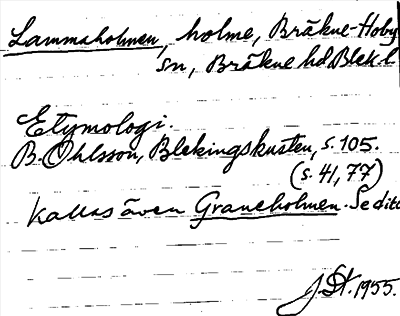 Lammaholmen, holme, Bräkne-Hoby
sn, Bräkne hd Blek l
Etymologi.
B. Ohlsson, Blekingskusten, s. 105.
(s. 41, 77)
Kallas även Graneholmen. Se dito
J. St. 1955.